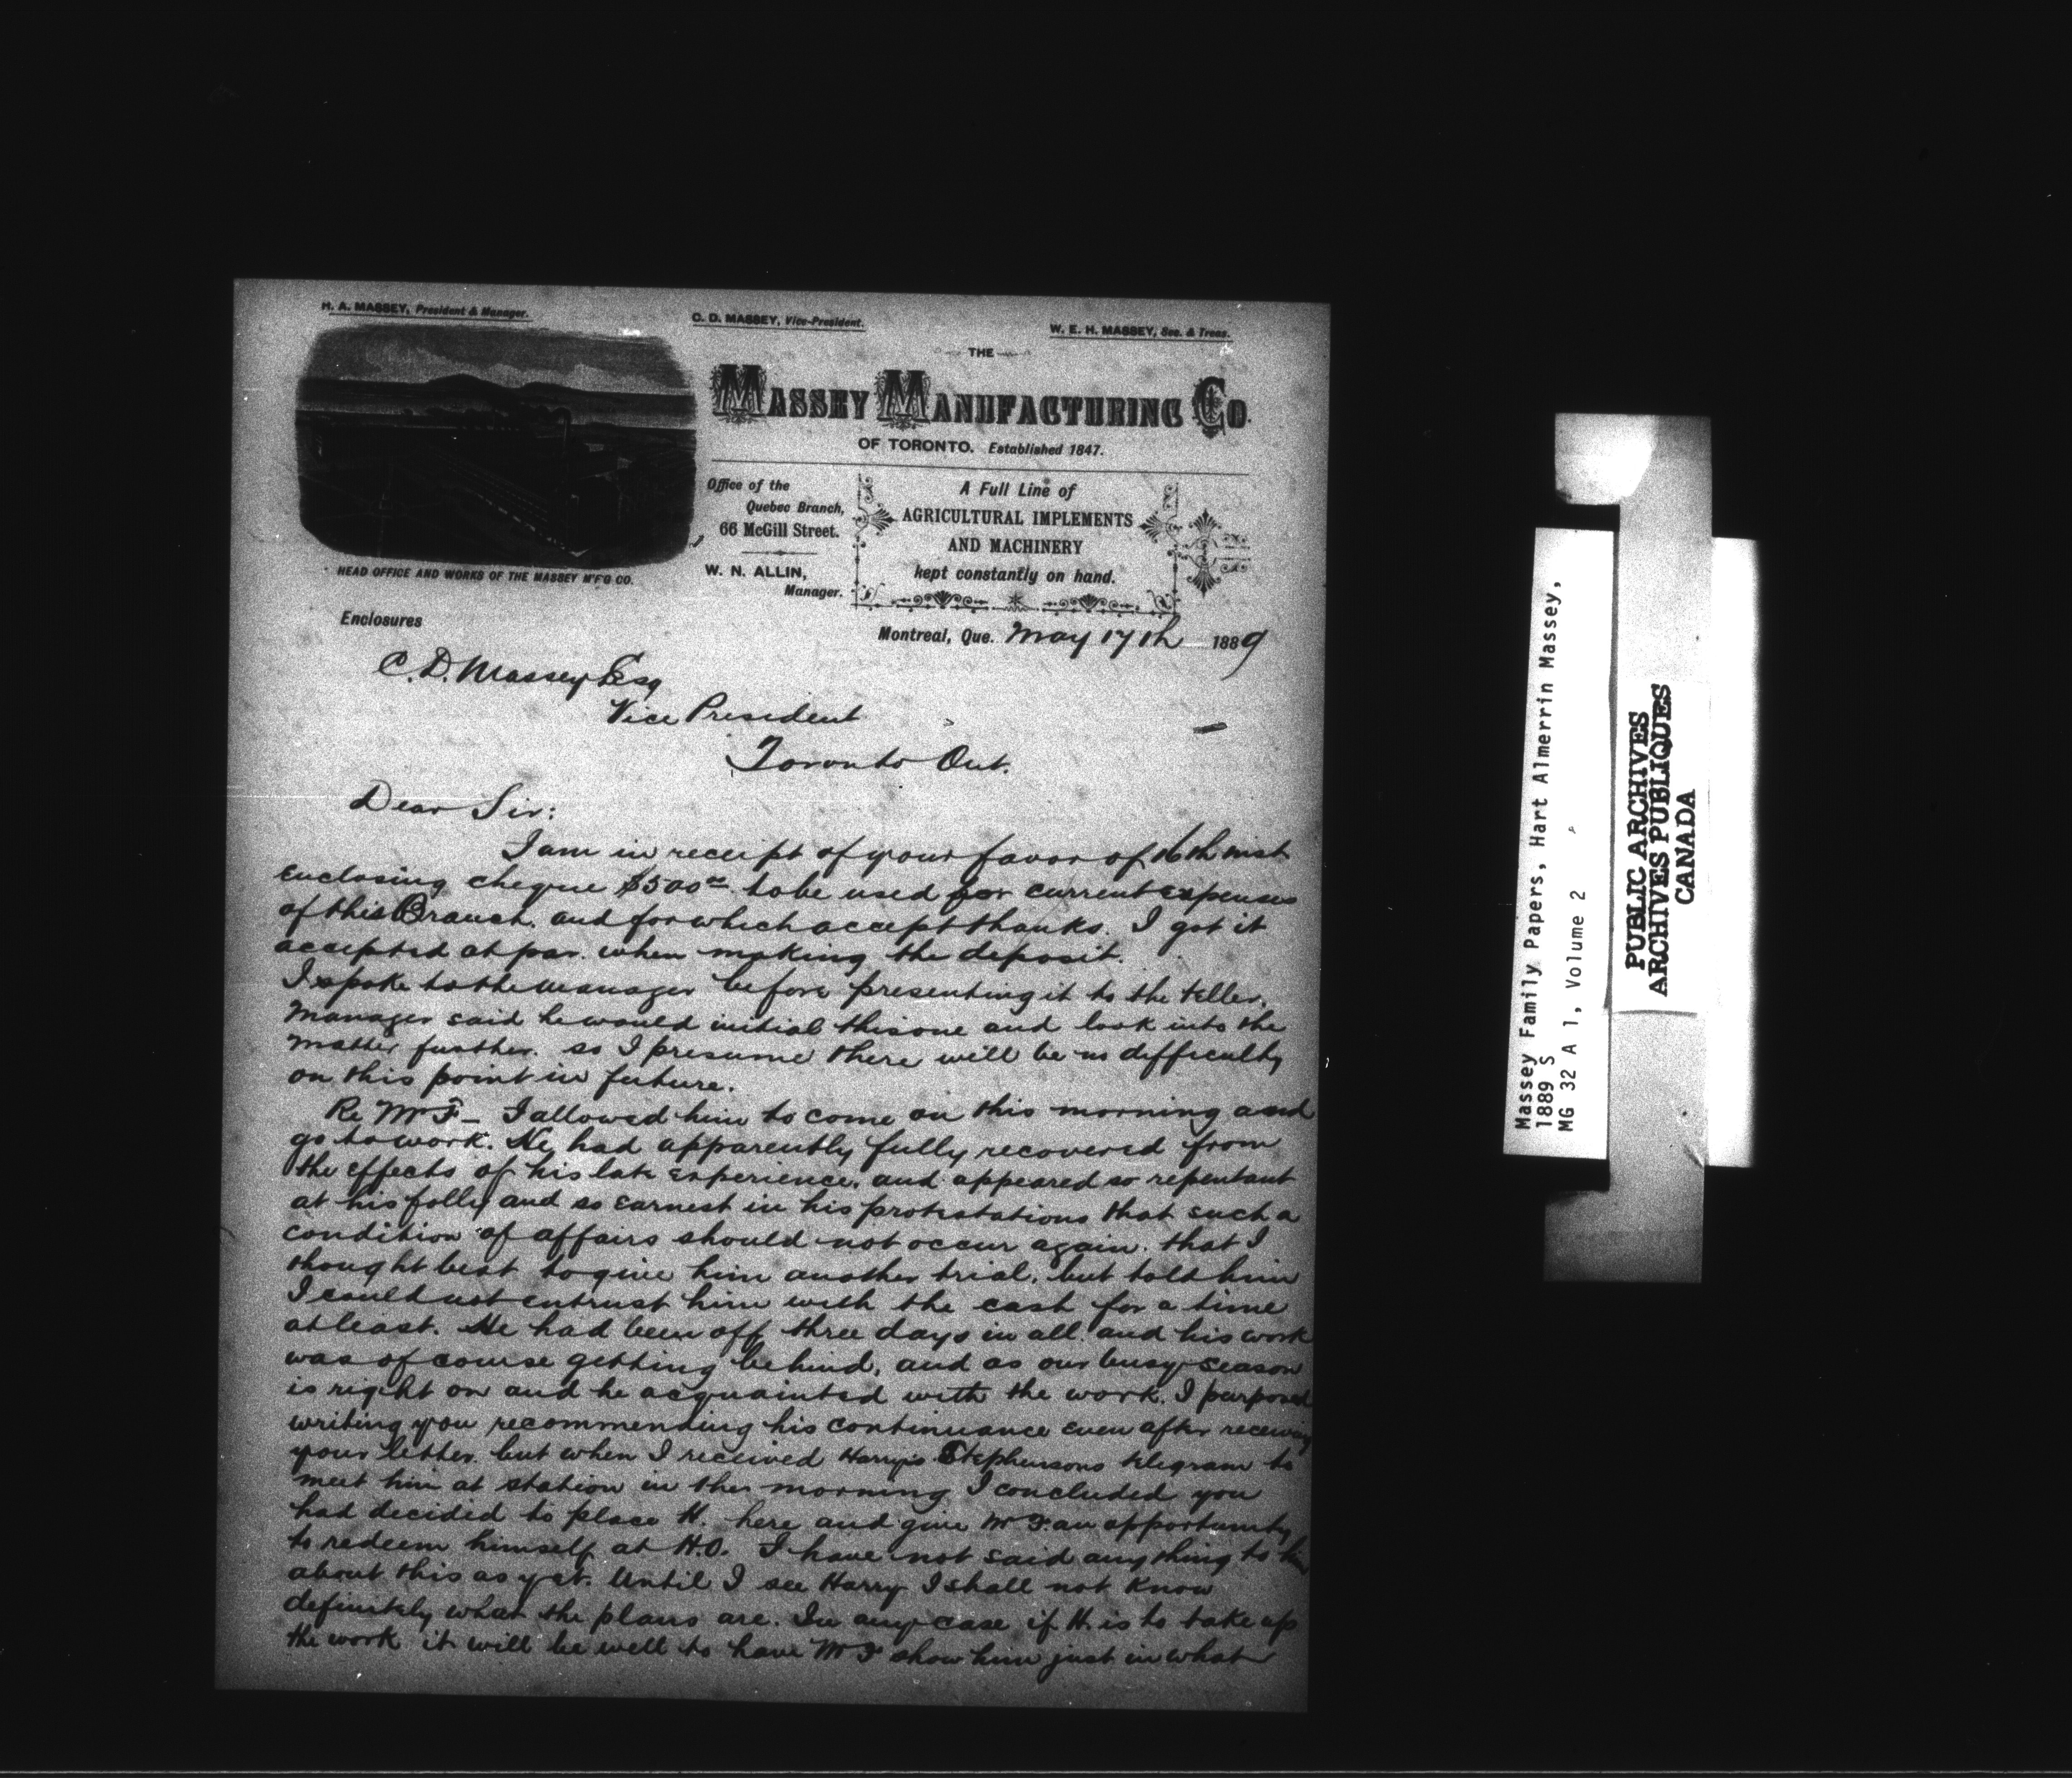 H. A. MASSEY, President & Manager.
C. D. MASSEY, Vice-President.
W. E. H. MASSEY, Sec. & Treas.
THE
MASSEY MANUFACTURING CO.
OF TORONTO. Established 1847.
Office of the
Quebec Branch,
66 McGill Street.
W. N. ALLIN,
Manager.
A Full Line of
AGRICULTURAL IMPLEMENTS
AND MACHINERY
kept constantly on hand.
HEAD OFFICE AND WORKS OF THE MASSEY M'F'G CO.
Enclosures
Montreal, Que. May 17th 1889
C. D. Massey Esq
Vice President
Toronto Ont.
Dear Sir:
I am in receipt of your favor of 16th inst
enclosing cheque $500 to be used for current expenses
of this Branch. and for which accept thanks. I got it
accepted at par. when making the deposit.
I spoke to the manager before presenting it to the teller.
Manager said he would initial this one and look into the
matter further. so I presume there will be no difficulty
on this point in future.
Re Mr F – I allowed him to come on this morning and
go to work. He had apparently fully recovered from
the effects of his late experience. and appeared so repentant
at his folly and so earnest in his protestations that such a
condition of affairs should not occur again. that I
thought best to give him another trial, but told him
I could not entrust him with the cash for a time
at least. He had been off three days in all. and his work
was of course getting behind, and as our busy season
is right on and he acquainted with the work. I purposed
writing you recommending his continuance even after receiving
your letter. but when I received Harry's Stephensons telegram to
meet him at station in the morning I concluded you
had decided to place H. here and give Mr F. an opportunity
to redeem himself at H.O. I have not said anything to him
about this as yet. Until I see Harry I shall not know
definitely what the plans are. In any case if H. is to take up
the work it will be well to have Mr F show him just in what
Massey Family Papers, Hart Almerrin Massey,
1889 S
MG 32 A 1, Volume 2
PUBLIC ARCHIVES
ARCHIVES PUBLIQUES
CANADA